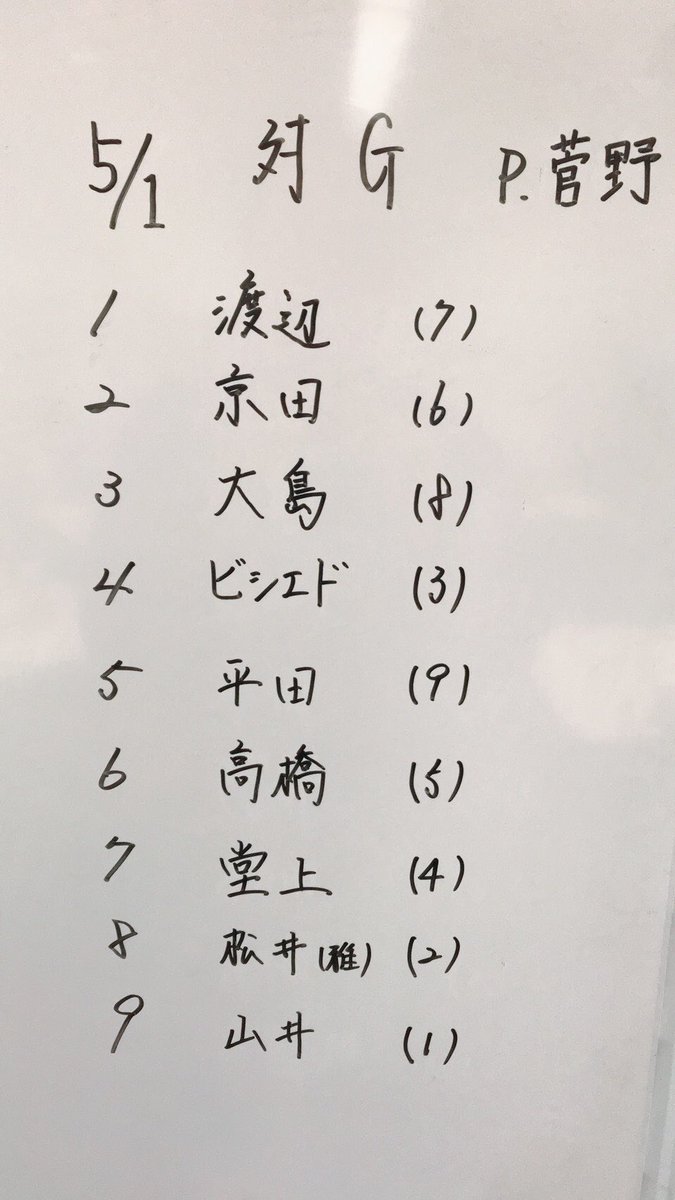 5/1 対 G P.菅野
1 渡辺 (7)
2 京田 (6)
3 大島 (8)
4 ビシエド (3)
5 平田 (9)
6 高橋 (5)
7 堂上 (4)
8 松井(雅) (2)
9 山井 (1)